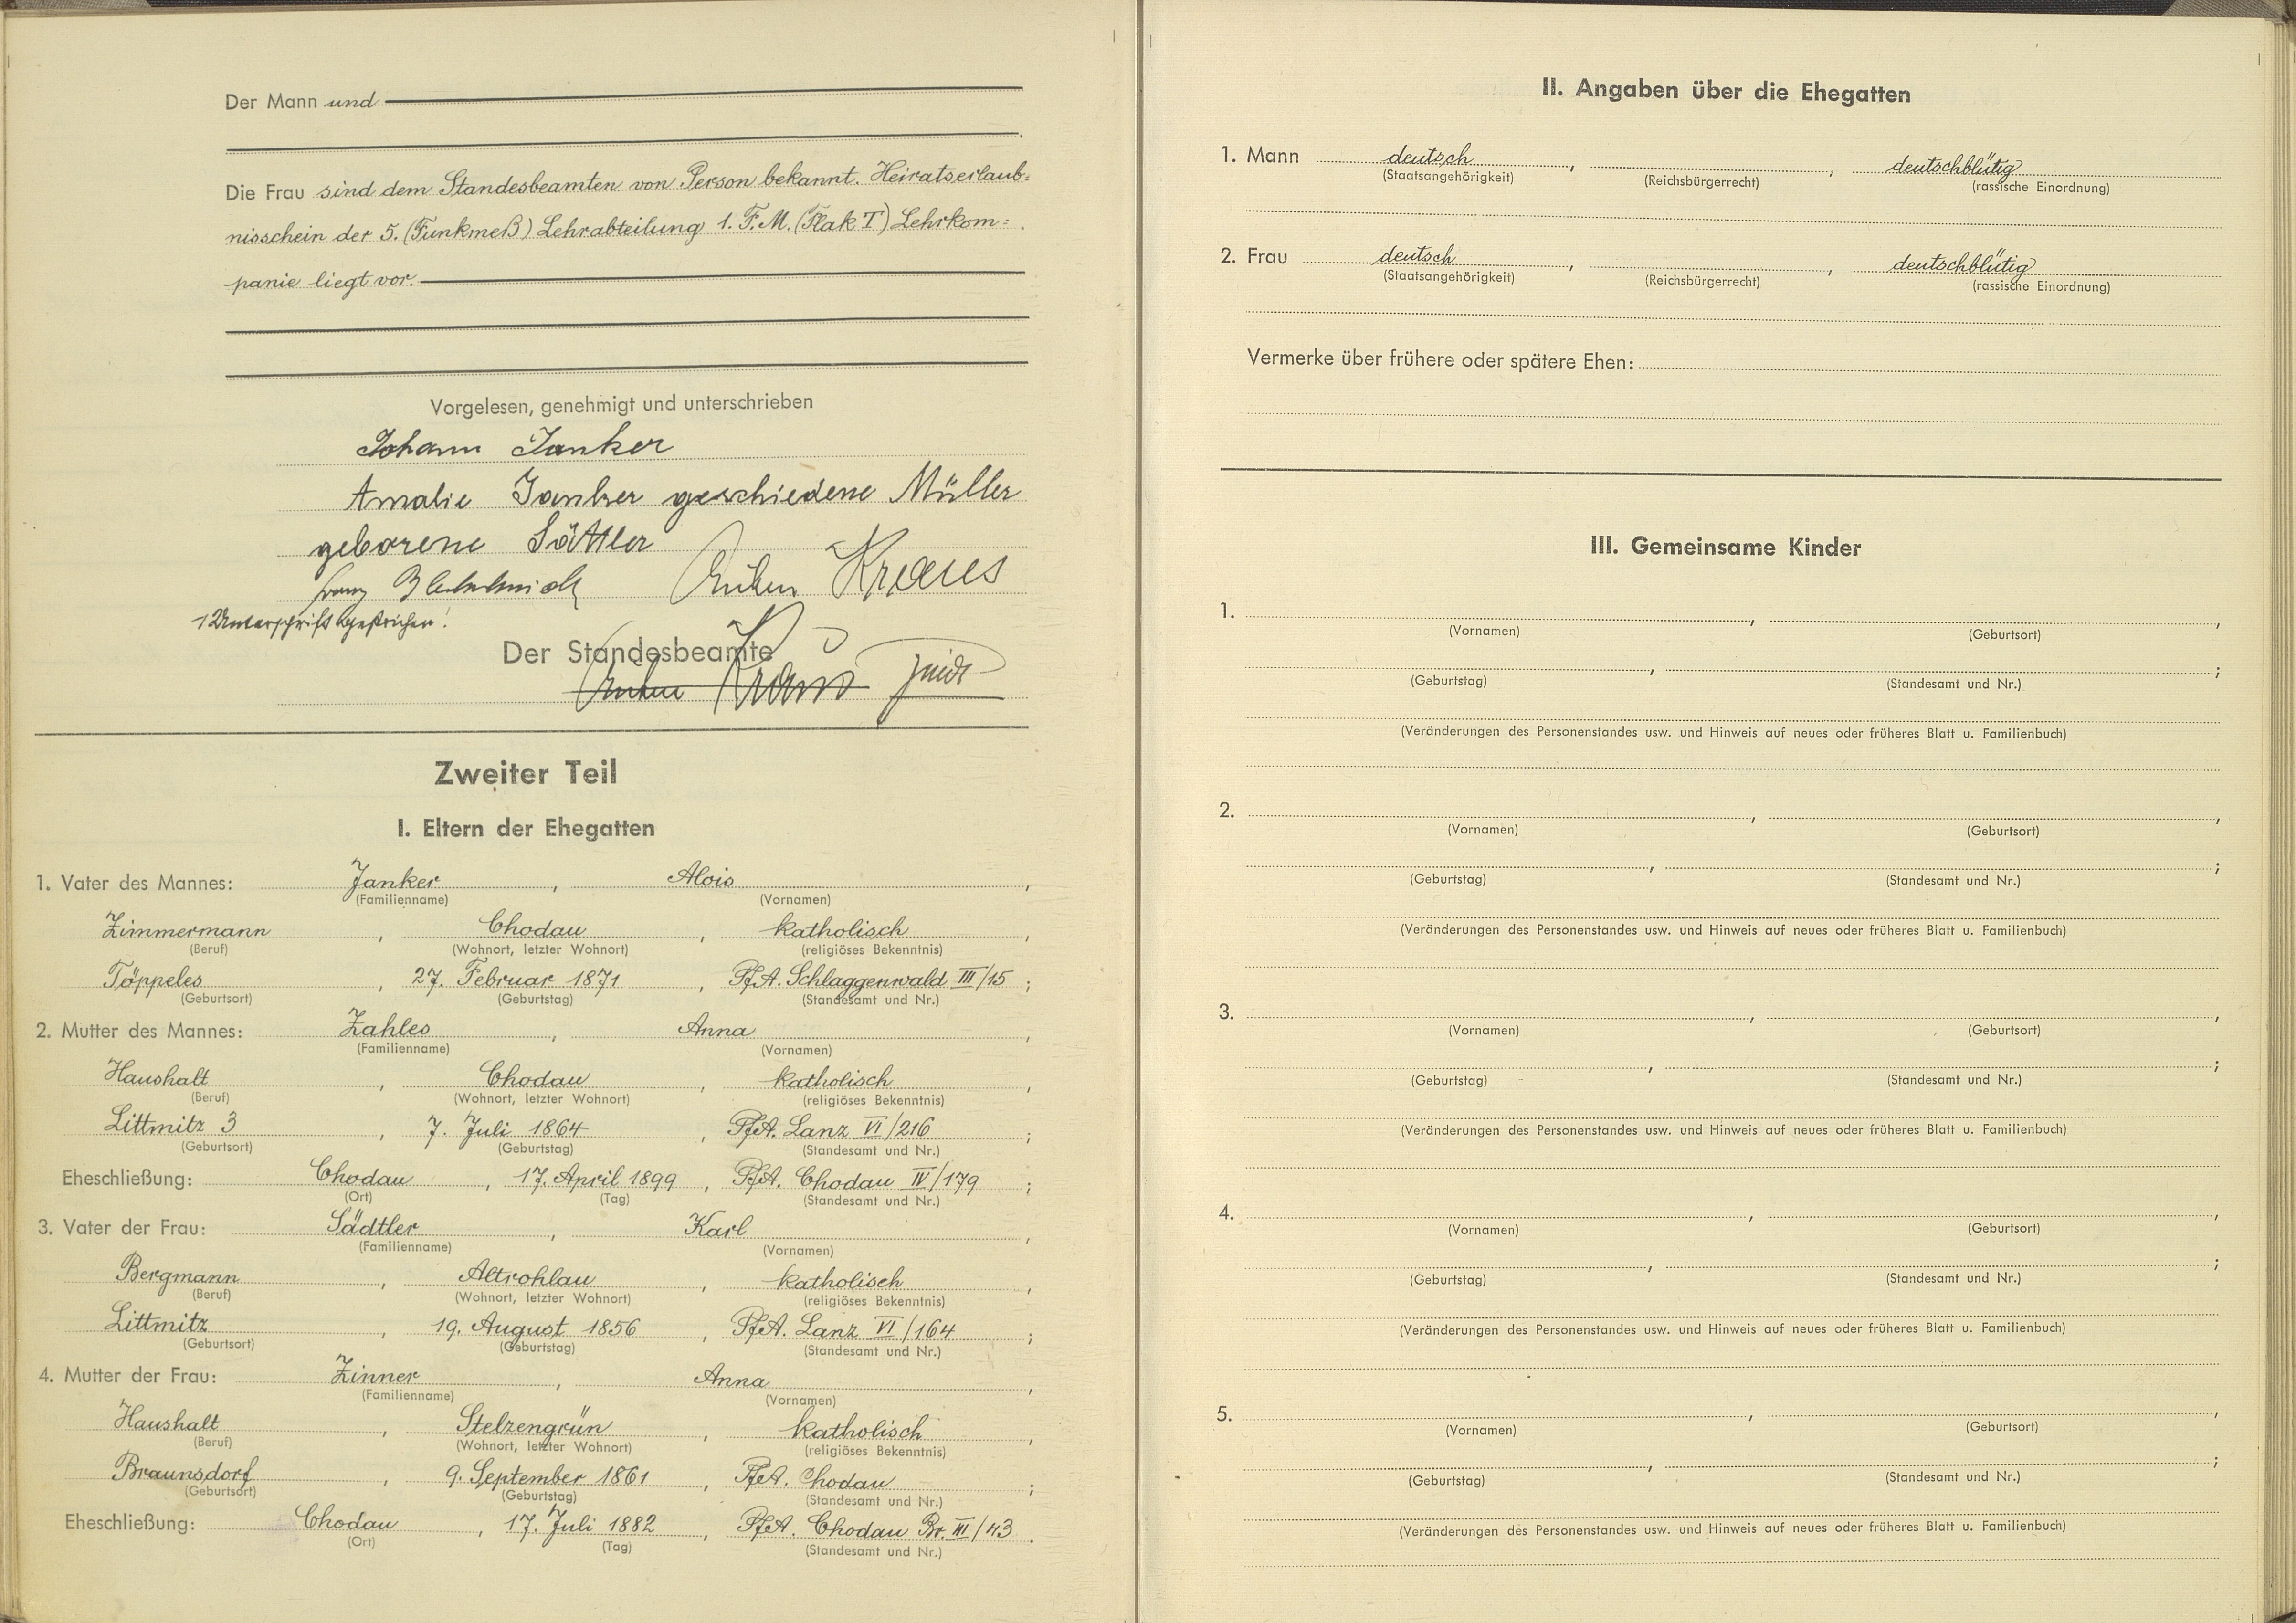 Der Mann und
Die Frau sind dem Standesbeamten von Person bekannt. Heiratserlaub=
nisschein der 5. (Funkmeß) Lehrabteilung 1. F.M. (Flak T) Lehrkom=
panie liegt vor.
Vorgelesen, genehmigt und unterschrieben
Johann Janker
Amalie Janker geschiedene Müller
geborene Sättler
Franz Kraus
1 Unterschrift gestrichen!
Der Standesbeamte
Kraus
Zweiter Teil
I. Eltern der Ehegatten
1. Vater des Mannes: Janker, Alois,
(Familienname) (Vornamen)
Zimmermann, Chodau, katholisch,
(Beruf) (Wohnort, letzter Wohnort) (religiöses Bekenntnis)
Töppeles, 27. Februar 1871, PfA. Schlaggenwald III/15;
(Geburtsort) (Geburtstag) (Standesamt und Nr.)
2. Mutter des Mannes: Zahles, Anna,
(Familienname) (Vornamen)
Haushalt, Chodau, katholisch,
(Beruf) (Wohnort, letzter Wohnort) (religiöses Bekenntnis)
Littmitz 3, 7. Juli 1864, PfA. Lanz VI/216;
(Geburtsort) (Geburtstag) (Standesamt und Nr.)
Eheschließung: Chodau, 17. April 1899, PfA. Chodau IV/179;
(Ort) (Tag) (Standesamt und Nr.)
3. Vater der Frau: Sädtler, Karl,
(Familienname) (Vornamen)
Bergmann, Altrohlau, katholisch,
(Beruf) (Wohnort, letzter Wohnort) (religiöses Bekenntnis)
Littmitz, 19. August 1856, PfA. Lanz VI/164;
(Geburtsort) (Geburtstag) (Standesamt und Nr.)
4. Mutter der Frau: Zinner, Anna,
(Familienname) (Vornamen)
Haushalt, Stelzengrün, katholisch,
(Beruf) (Wohnort, letzter Wohnort) (religiöses Bekenntnis)
Braunsdorf, 9. September 1861, PfA. Chodau;
(Geburtsort) (Geburtstag) (Standesamt und Nr.)
Eheschließung: Chodau, 17. Juli 1882, PfA. Chodau Br. III/43.
(Ort) (Tag) (Standesamt und Nr.)
II. Angaben über die Ehegatten
1. Mann deutsch, , deutschblütig
(Staatsangehörigkeit) (Reichsbürgerrecht) (rassische Einordnung)
2. Frau deutsch, , deutschblütig
(Staatsangehörigkeit) (Reichsbürgerrecht) (rassische Einordnung)
Vermerke über frühere oder spätere Ehen:
III. Gemeinsame Kinder
1. , ,
(Vornamen) (Geburtsort)
, ;
(Geburtstag) (Standesamt und Nr.)
(Veränderungen des Personenstandes usw. und Hinweis auf neues oder früheres Blatt u. Familienbuch)
2. , ,
(Vornamen) (Geburtsort)
, ;
(Geburtstag) (Standesamt und Nr.)
(Veränderungen des Personenstandes usw. und Hinweis auf neues oder früheres Blatt u. Familienbuch)
3. , ,
(Vornamen) (Geburtsort)
, ;
(Geburtstag) (Standesamt und Nr.)
(Veränderungen des Personenstandes usw. und Hinweis auf neues oder früheres Blatt u. Familienbuch)
4. , ,
(Vornamen) (Geburtsort)
, ;
(Geburtstag) (Standesamt und Nr.)
(Veränderungen des Personenstandes usw. und Hinweis auf neues oder früheres Blatt u. Familienbuch)
5. , ,
(Vornamen) (Geburtsort)
, ;
(Geburtstag) (Standesamt und Nr.)
(Veränderungen des Personenstandes usw. und Hinweis auf neues oder früheres Blatt u. Familienbuch)